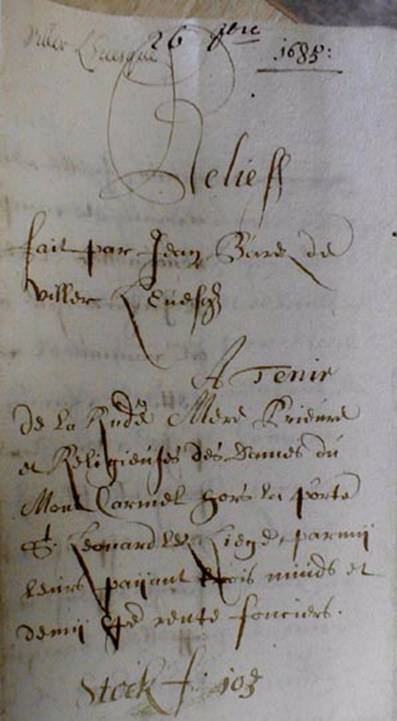 Viller Levesque 26 9bre 1685:
Relieff
fait par Jean Bare de
Viller Leuesq
A Tenir
de La Rnde Mere Prieure
et Religieuses des Dames du
Mont Carmel hors la porte
St Leonard lez Liege, parmy
leurs paijant trois muids et
demij rente fonciers.
Stock f. 103